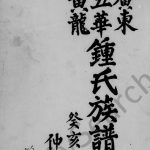 廣東
五華
黃龍
鍾氏族譜
癸亥
仲